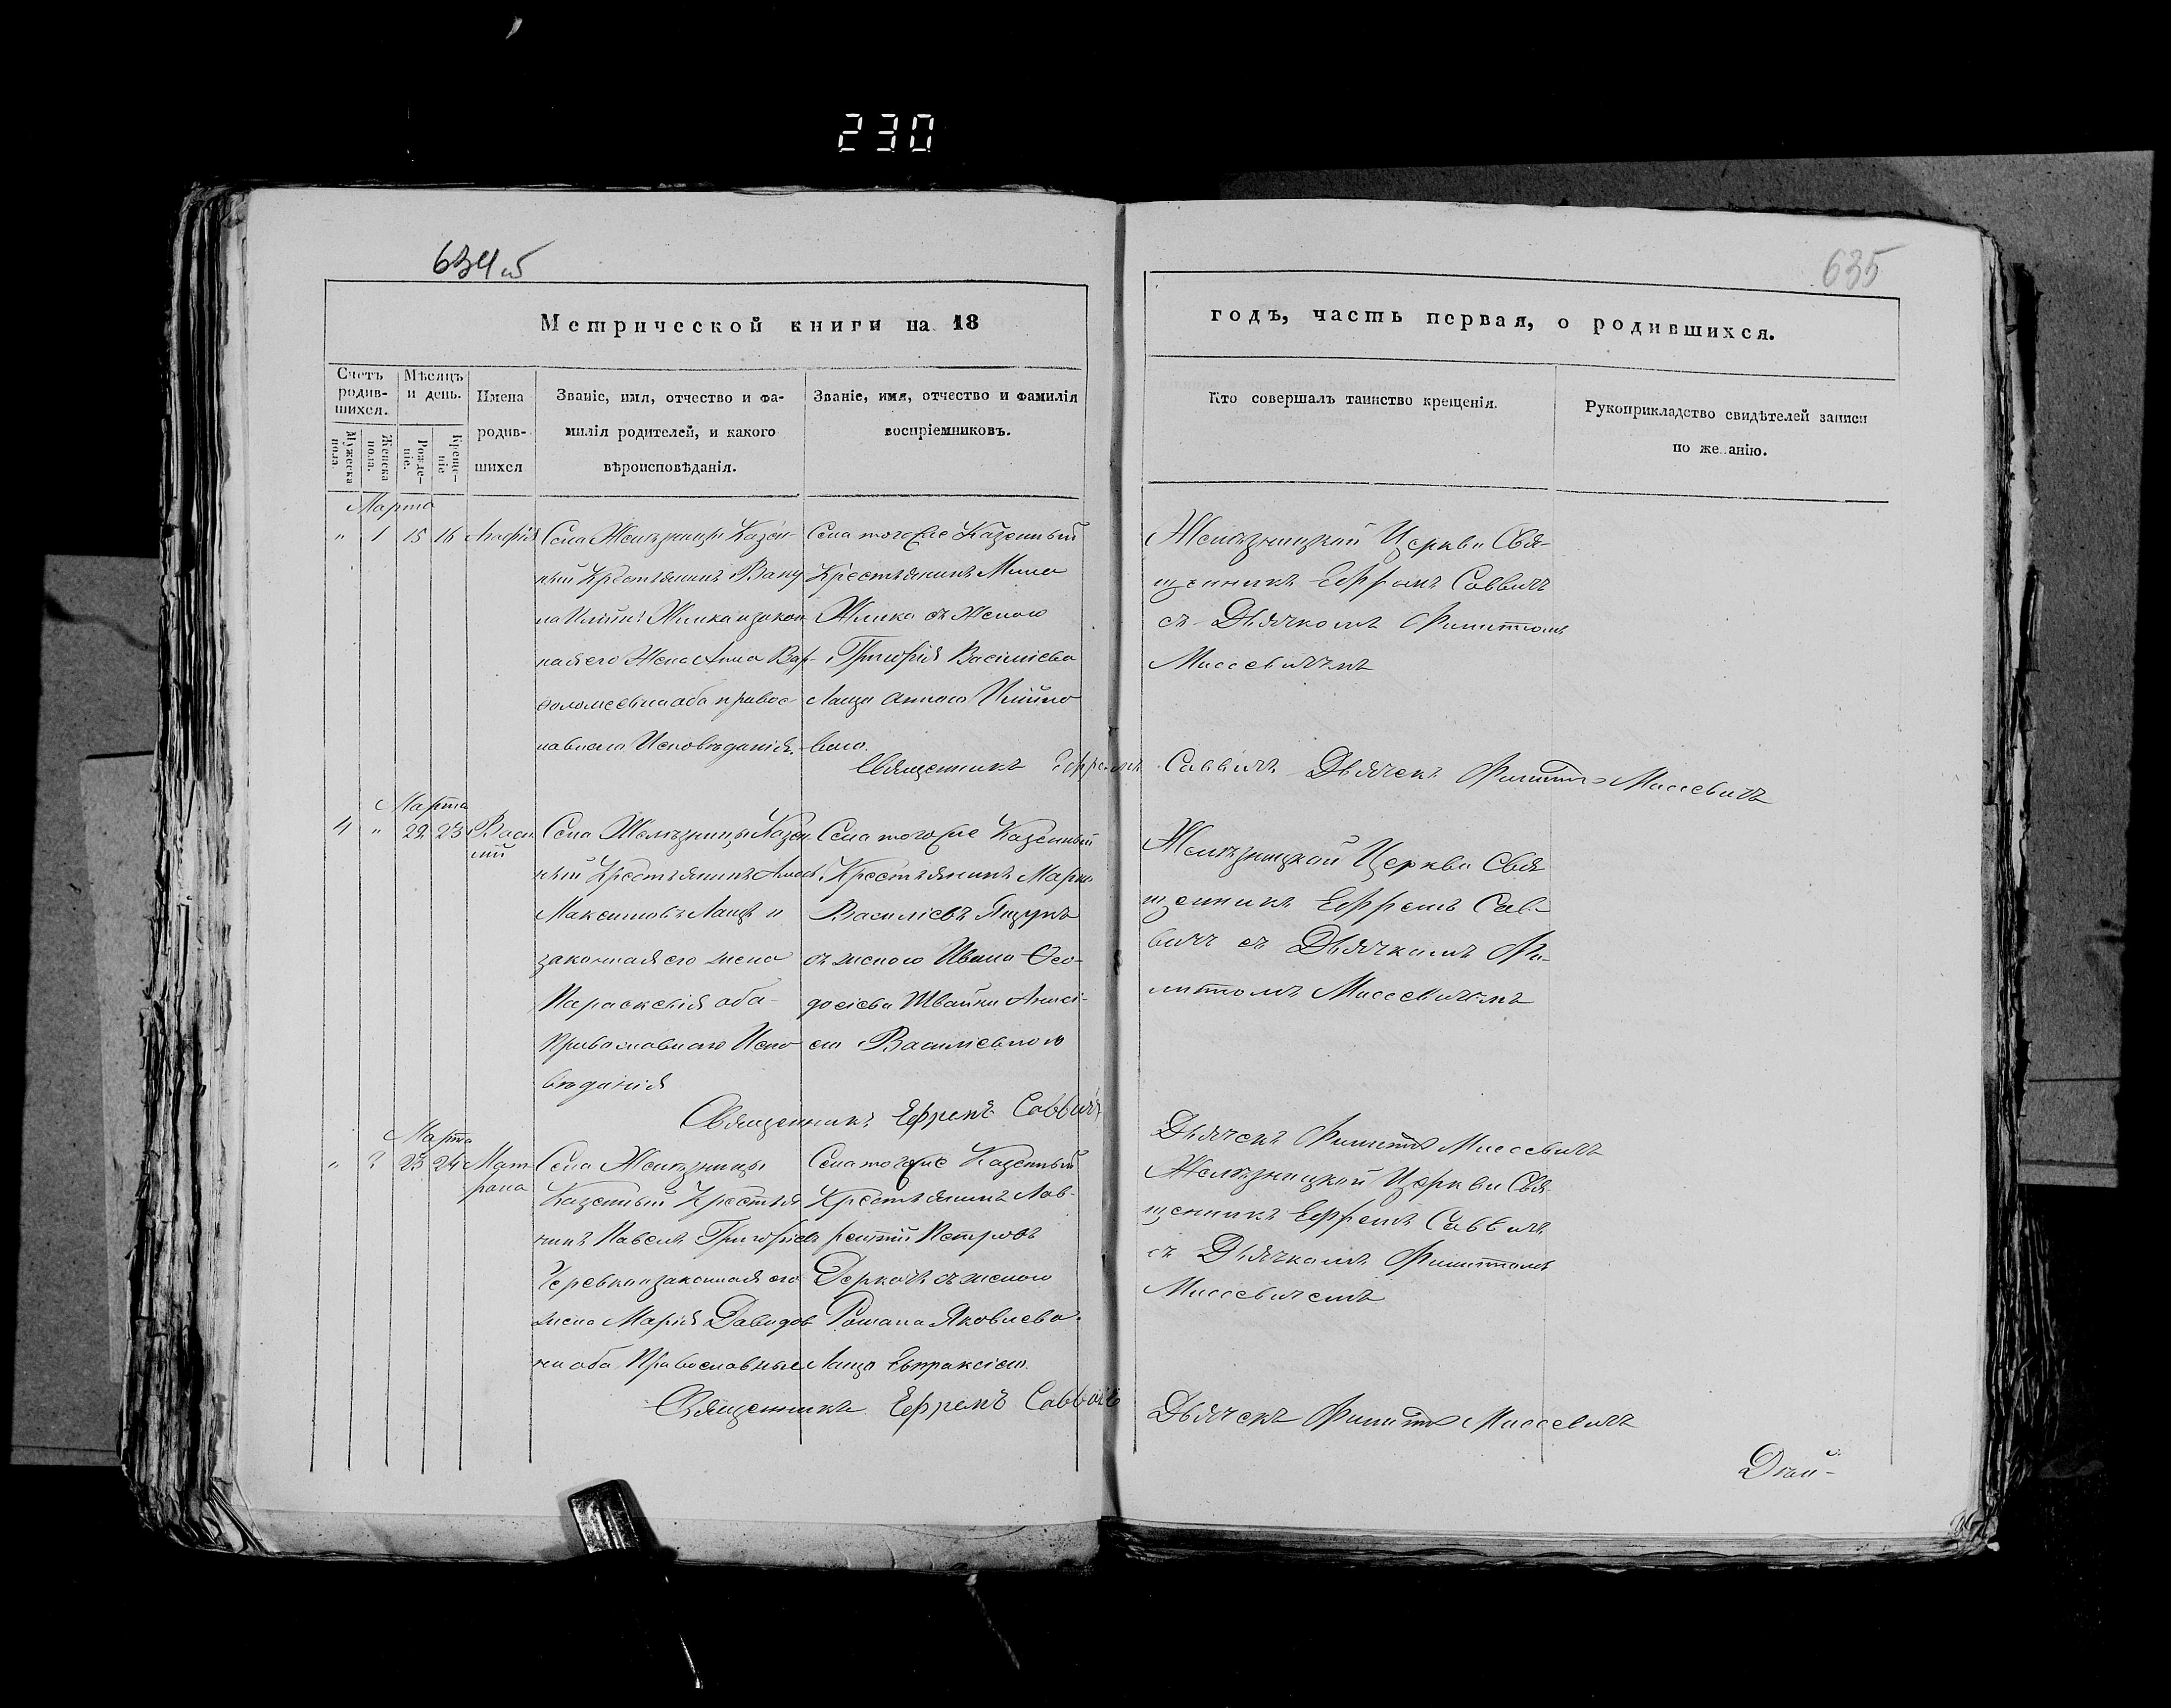 230
634 об
635
Метрической книги на 18
годъ, часть первая, о родившихся.
Счетъ родив-шихся.
Мужеска пола
Женска пола.
Мѣсяцъ и день.
Рожде-ніе.
Креще-ніе
Имена
родив-
шихся
Званіе, имя, отчество и фа-
милія родителей, и какого
вѣроисповѣданія.
Званіе, имя, отчество и фамилія
воспріемниковъ.
Кто совершалъ таинство крещенія.
Рукоприкладство свидѣтелей записи
по же анію.
Марта
" 1 15 16
Села Желѣзницы Казен-
ный Крестьянинъ
Жилка и закон
ная его Жена Анна Вар-
ѳоломеевна оба правос-
лавнаго Исповѣданія.
Села тогоже Казенный
Крестьянинъ
Жилка съ Женою
Григорія Василіева
Лащо
вою.
Желѣзницкой Церкви Свя-
щенникъ Ефремъ Саввичъ
съ Дьячкомъ Филиппомъ
Миссевичемъ
Священникъ Ефремъ Саввичъ Дьячекъ Филиппъ Миссевичъ
Марта
4 " 22 23 Васи
лій
Села Желѣзницы Казен
ный Крестьянинъ
Максимовъ Лащъ и
законная его жена
Параскевія оба
Православнаго Испо
вѣданія
Села тогоже Казенный
Крестьянинъ Марко
Василіевъ Ящукъ
съ женою Ивана Ѳео-
досіева Швайки Анисі-
ею Василіевною
Желѣзницкой Церкви Свя
щенникъ Ефремъ Сав-
вичъ съ Дьячкомъ Фи-
липпомъ Миссевичемъ
Священникъ Ефремъ Саввичъ
Дьячекъ Филиппъ Миссевичъ
Марта
" 2 23 24 Мат
рона
Села Желѣзницы
Казенный Крестья
нинъ Павелъ Григоріевъ
Черевко и законная его
жена Марія Давидов
на оба Православные
Села тогоже Казенный
Крестьянинъ Лав-
рентій Петровъ
Деркачъ съ женою
Романа Яковлева
Лащо Евпраксіею.
Желѣзницкой Церкви Свя
щенникъ Ефремъ Саввичъ
съ Дьячкомъ Филиппомъ
Миссевичемъ
Священникъ Ефремъ Саввичъ
Дьячекъ Филиппъ Миссевичъ